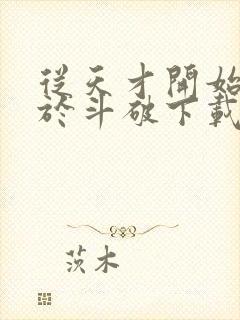 從天才開始
於斗破下載
茨木